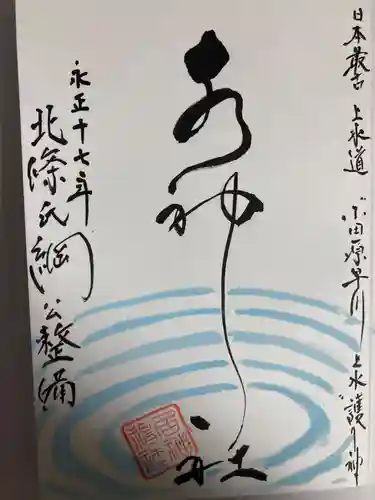 日本最古 上水道 "小田原早川上水"護り神
水神社
永正十七年
北條氏綱公整備